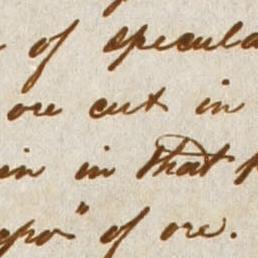 of specula
ore cut in
in in that
of ore.